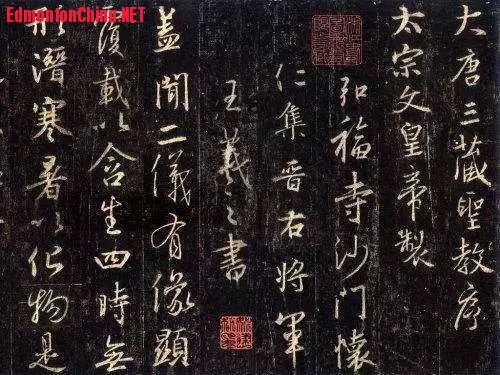 EdmontonChina.NET
大唐三藏聖教序
太宗文皇帝製
弘福寺沙門懷
仁集晉右將軍
王羲之書
蓋聞二儀有像顯
覆載以含生四時無
形潛寒暑以化物是